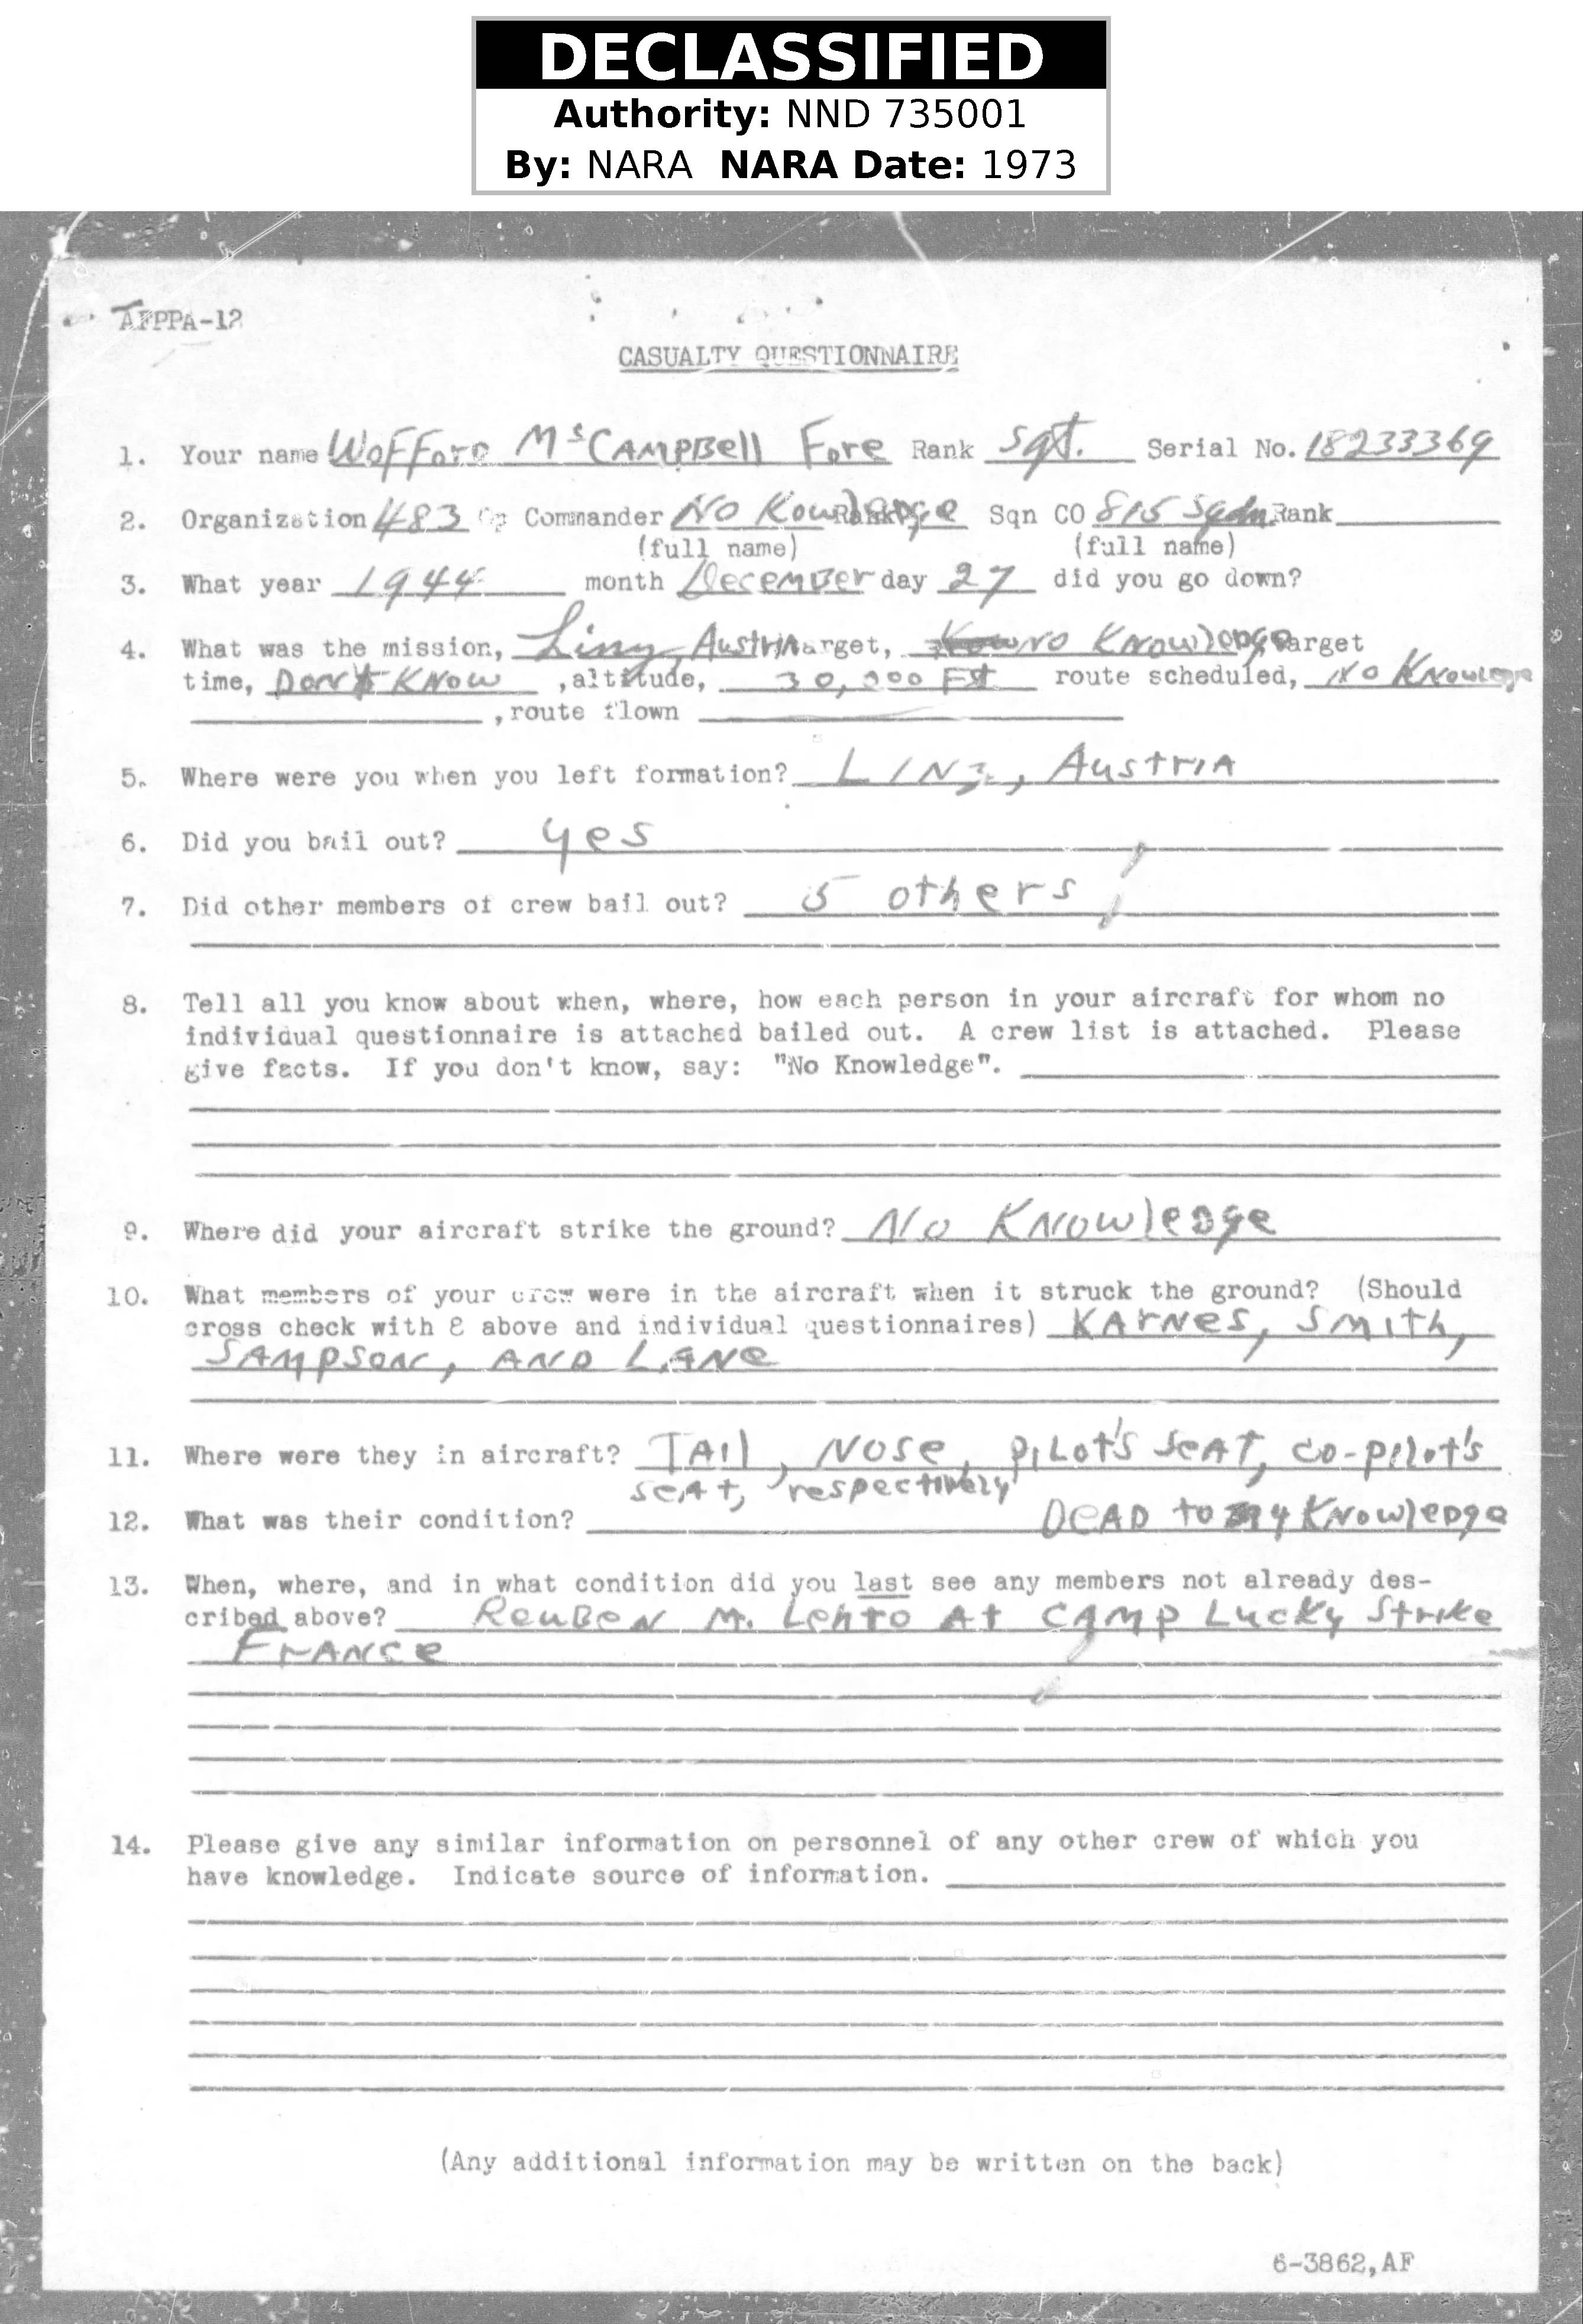 DECLASSIFIED
Authority: NND 735001
By: NARA NARA Date: 1973
AFPPA-12
CASUALTY QUESTIONNAIRE
1. Your name Wofford McCampbell Fore Rank Sgt. Serial No. 18233369
2. Organization 483 Gp Commander No Kowledge Rank Sqn CO 815 Sqdn Rank
(full name) (full name)
3. What year 1944 month December day 27 did you go down?
4. What was the mission, Linz, Austria target, No Knowledge target
time, Don't Know ,altitude, 30,000 Ft route scheduled, No Knowlege
,route flown
5. Where were you when you left formation? Linz, Austria
6. Did you bail out? yes
7. Did other members of crew bail out? 5 others
8. Tell all you know about when, where, how each person in your aircraft for whom no
individual questionnaire is attached bailed out. A crew list is attached. Please
give facts. If you don't know, say: "No Knowledge".
9. Where did your aircraft strike the ground? No Knowledge
10. What members of your crew were in the aircraft when it struck the ground? (Should
cross check with 8 above and individual questionnaires) Karnes, Smith,
Sampson, and Lane
11. Where were they in aircraft? Tail, Nose, pilot's seat, co-pilot's
seat, respectively
12. What was their condition? Dead to my Knowledge
13. When, where, and in what condition did you last see any members not already des-
cribed above? Reuben M. Lehto At Camp Lucky Strike
France
14. Please give any similar information on personnel of any other crew of which you
have knowledge. Indicate source of information.
(Any additional information may be written on the back)
6-3862,AF